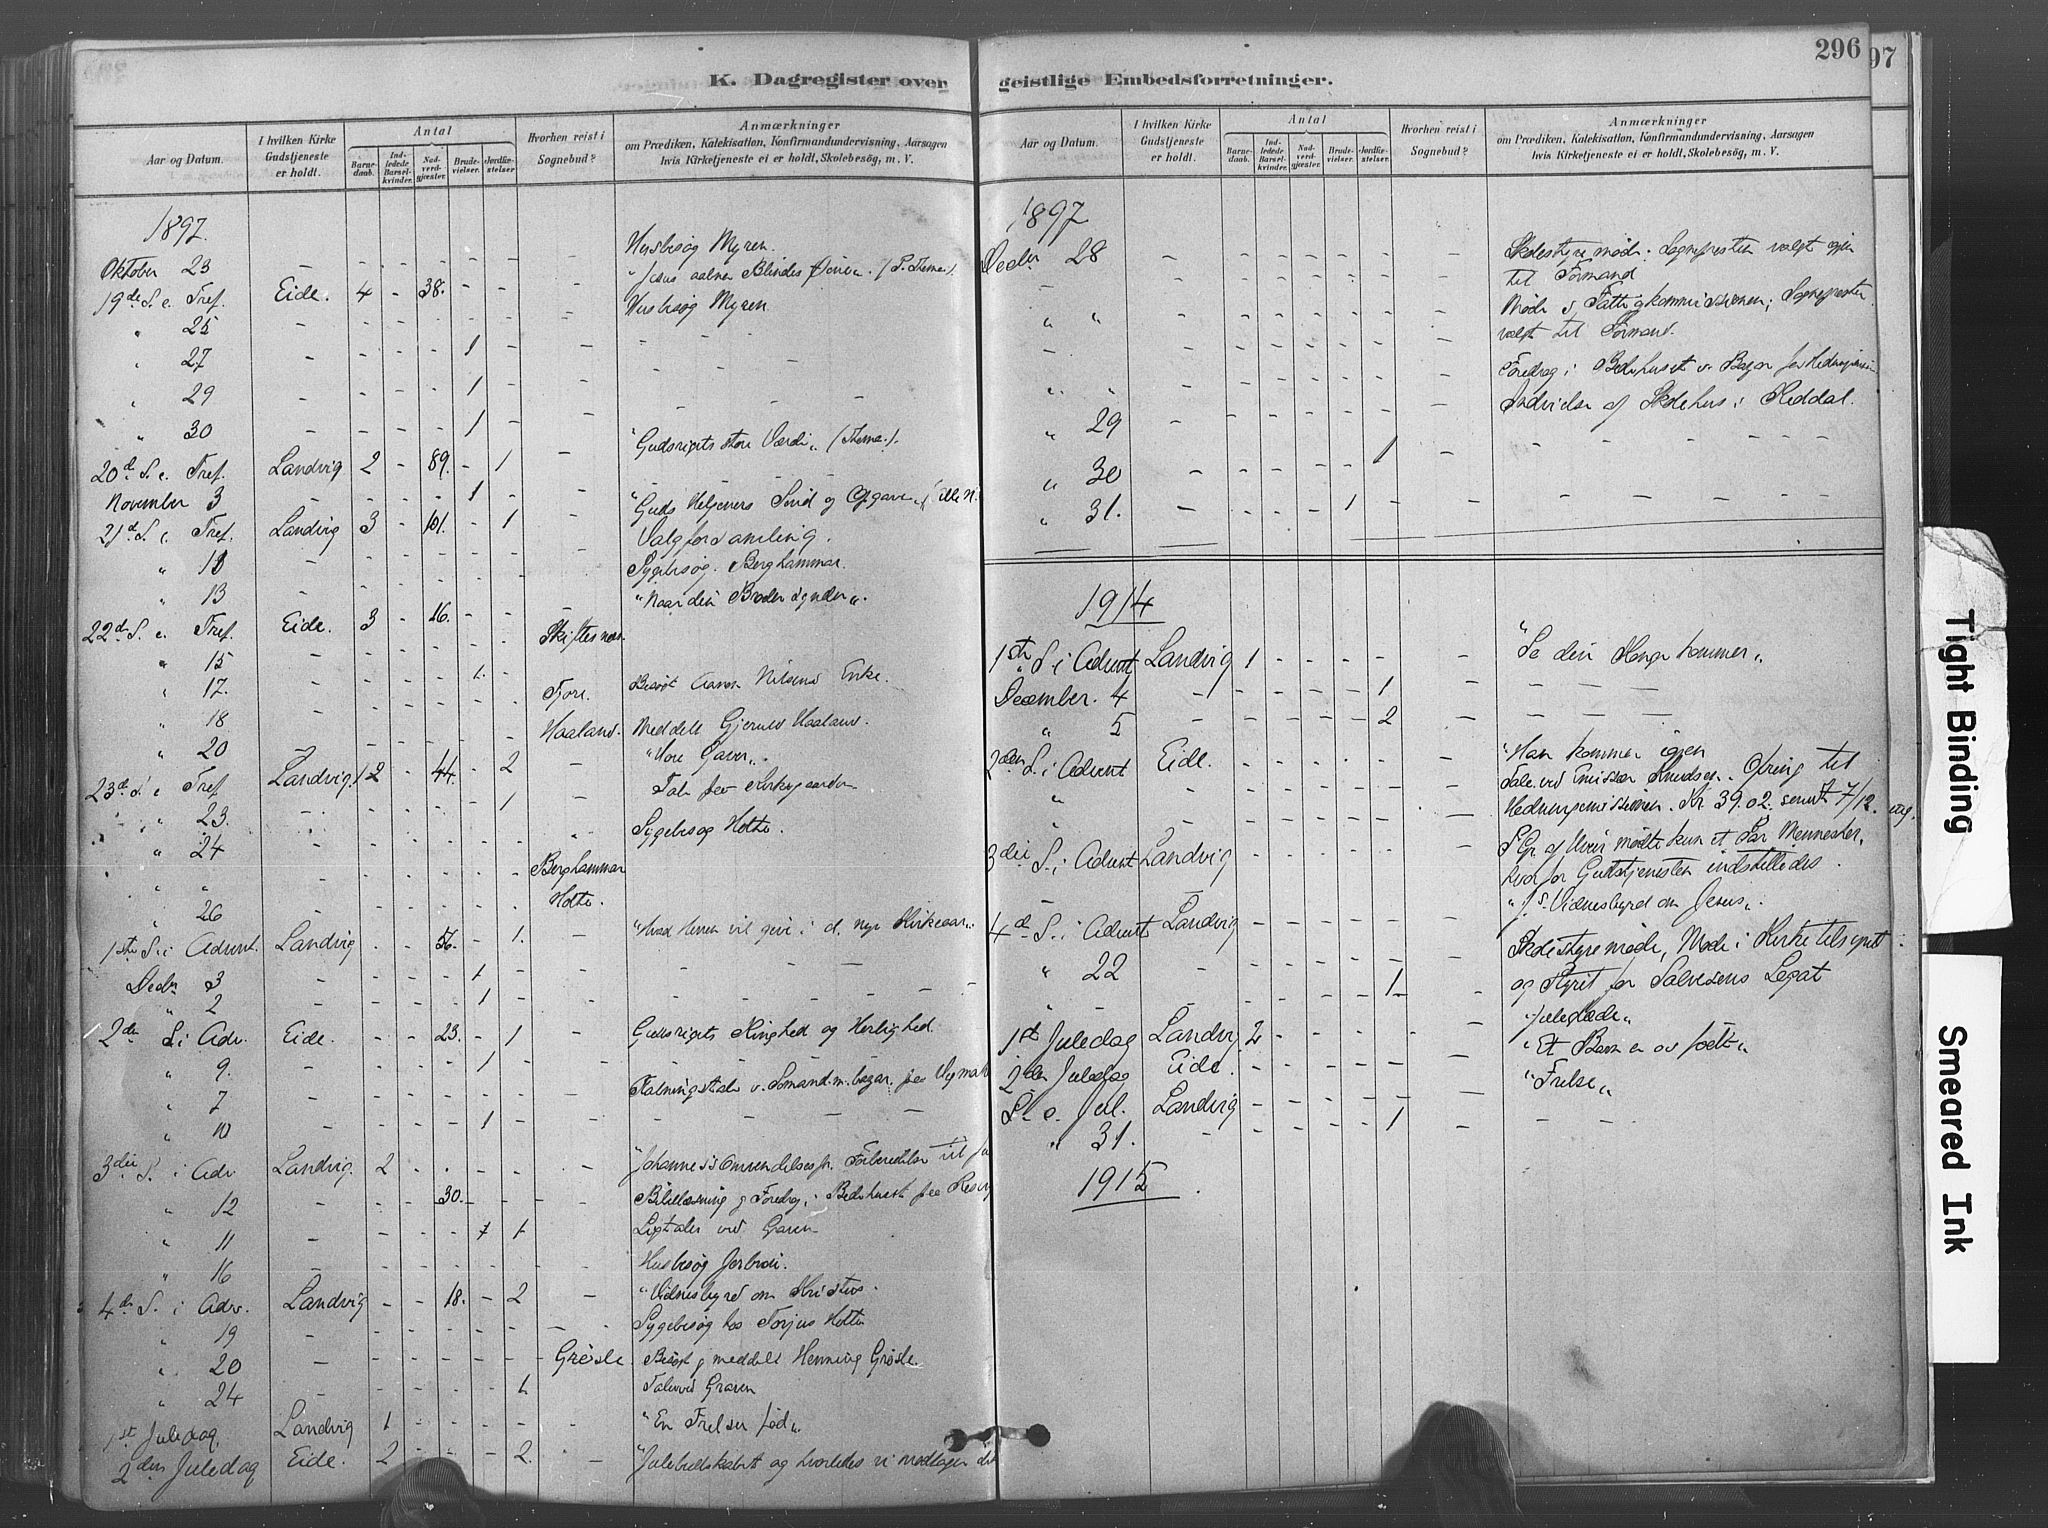 K. Dagregister over geistlige Embedsforretninger.
296
97
Aar og Datum.
I hvilken Kirke Gudstjeneste er holdt.
Antal
Barnedaab.
Indledede Barselkvinder.
Nadverdgjæster.
Brudevielser.
Jordfæstelser
Hvorhen reist i Sognebud?
Anmærkninger
om Prædiken, Katekisation, Konfirmandundervisning, Aarsagen
hvis Kirketjeneste ei er holdt, Skolebesøg, m. V.
1897.
Oktober 23 - - - - - - - Husbesøg Myren.
19de S. e. Tref. Eide. 4 - 38. - - - "Jesus aabner Blindes Øine". (S. Thema).
" 25 - - - - - - - Husbesøg Myren
" 27 - - - - 1 - - - - -
" 29 - - - - 1 - - - - -
" 30 - - - - 1 - - - - -
20de S. e. Tref. Landvig 2 - 89. - 1 - "Gudsrigets store Værdi" (Thema).
November 3 - - - - 1 - -
21de S. e. Tref. Landvig 3 - 101. - 1 - "Guds Helgeners og Opgave"
" - - - - - - - Valgforsamling.
" 13 - - - - - - - Sygebesøg. Berghammar.
22de S. e. Tref. Eide. 3 - 16. - - - "Naar din Broder synder".
" 15 - - - - - - Skiftenes
" 17. - - - - 1. -
" 18 - - - - - - Fjore. Besøgt Aanon Nilsens Enke.
" 20 - - - - - - Haaland. Meddelt Gjerulv Haaland.
23de S. e. Tref Landvig 2 - 44. - 2 - "Vore Gaver".
" 23. - - - - - 1 - Tale paa Kirkegaarden
" 24 - - - - - - " Sygebesøg Holte.
" " - - - - - - Berghammar
" 26 - - - - - - Holte.
1ste S. i Advent. Landvig - - 56. - 1. - "Hvad Herren vil give i d. nye Kirkeaar".
Decbr 3 - - - - 1 - - - - -
" 2 - - - - 1 - - - - -
2den S. i Adv. Eide. - - 23. - 1 - Gudsrigets Ringhed og Herlighed.
" 9. - - - - 1 - -
" 7 - - - - - - - v. Sømand.m.bazar. paa
" 10 - - - - 1 - - - - -
3die S. i Adv Landvig. 2 - - - - -
" 12 - - - 30. - - - Bibellæsning og Foredrag i Bedehuset paa
" 11 - - - - 7 1 - Ligtaler ved Graven
" 16 - - - - - - - Husbesøg
4de S. i Adv. Landvig - - 18. - 2 - "Vidnesbyrd om Kristus.
" 19 - - - - - - - Sygebesøg hos Torjus Holte
" 20 - - - - - - Grøsle. Besøgt og meddelt Henning Grøsle.
" 24 - - - - - 1 Tale ved Graven
1st Juledag. Landvig 1 - - - - - "En Frelser fød".
2den Juledag Eide. 2 - - - 2. - "Julebudskabet og hvorledes vi modtager det
Aar og Datum.
I hvilken Kirke Gudstjeneste er holdt.
Antal
Barnedaab.
Indledede Barselkvinder.
Nadverdgjæster.
Brudevielser.
Jordfæstelser.
Hvorhen reist i Sognebud?
Anmærkninger
om Prædiken, Katekisation, Konfirmandundervisning, Aarsagen
hvis Kirketjeneste ei er holdt, Skolebesøg, m. V.
1897.
Decbr 28 - - - - - - - Skolestyremøde: Sognepresten valgt igjen
til Formand
" " - - - - - - - Møde i Fattigkommissionen; Sognepresten
valgt til Formand.
" " Foredrag i Bedehuset v. Bazar for Hedningemission
" 29 - - - - - - - Indvielse af Skolehus i Reddal.
" 30 - - - - - 1 - - - - -
" 31. - - - - 1 - - - - - -
1914
1ste S. i Advent Landvig 1 - - - - - "Se din Konge kommer"
December. 4 - - - - - 1 - - - -
" 5 - - - - - 2 - - - -
2den S. i Advent Eide. - - - - - - "Han kommer igjen
" - - - - - - - Tale ved Emissær Knudsen. Ofring til
" Hedningemissionen. Kr 39.02. sendt 7/12.
3die S. i Advent Landvig - - - - - - P. Gr. af Uveir mødte kun et Par Mennesker,
hvorfor Gudstjenesten indstilledes.
4de S. i Advent Landvig - - - - - - "J.s. Vidnesbyrd om Jesus".
" 22 - - - - - - - Skolestyremøde, Møde i Kirketilsynet
" - - - - - 1 - og Styret for Salvesens Legat
1st Juledag Landvig 2 - - - - - "Juleglæde"
2den Juledag Eide. - - - - - - "Et Barn er os født"
S. e. Jul. Landvig - - - - - - "Frelse"
" 31. - - - - - 1 - -
1915
Tight Binding
Smeared Ink